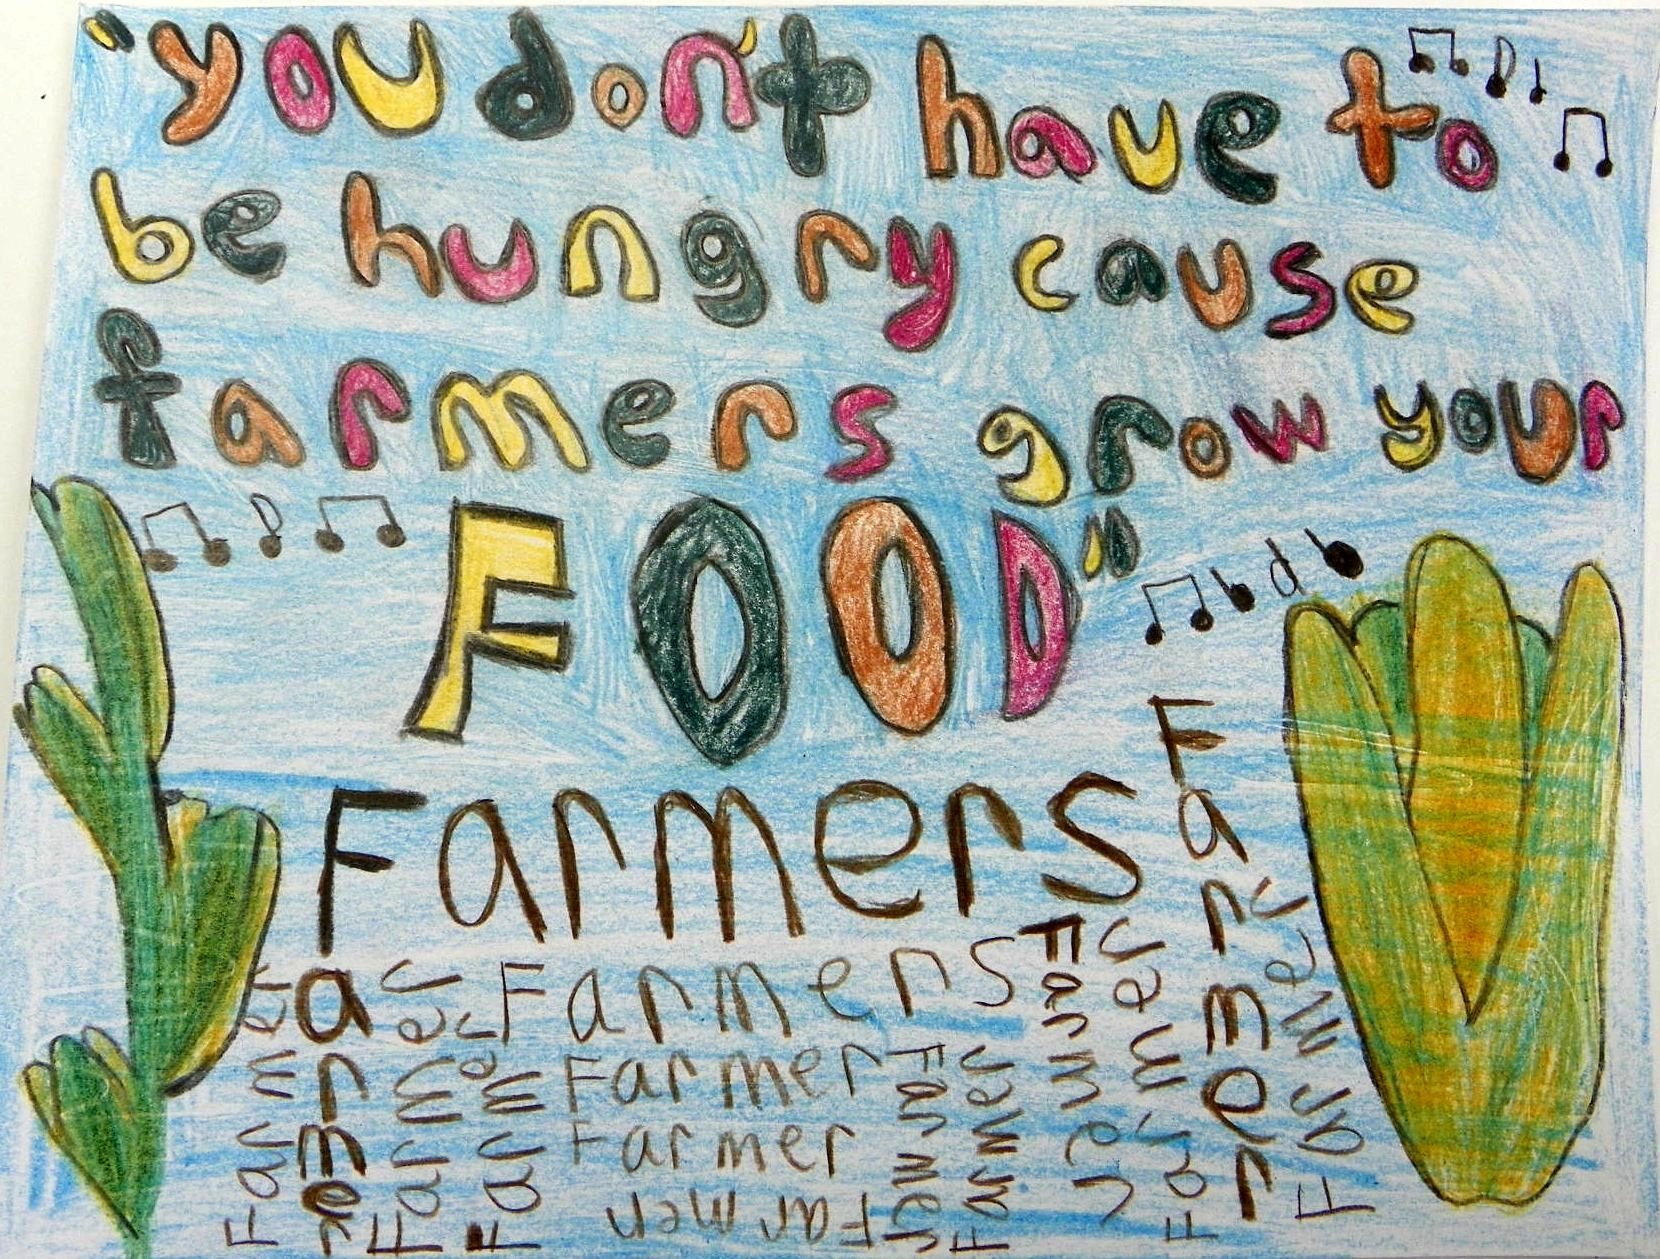 "you don't have to
be hungry cause
farmers grow your
FOOD"
Farmers
Farmers
Farmer
Farmer
Farmer
Farmer
Farmer
Farmer
Farmer
Farmer
Farmer
Farmer
Farmer
Farmer
Farmer